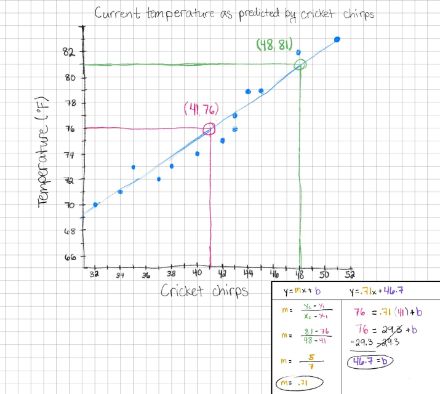 Current temperature as predicted by cricket chirps
(48,81)
(41,76)
Temperature (°F)
82
80
78
76
74
72
70
68
66
32 34 36 38 40 42 44 46 48 50 52
Cricket chirps
y=mx+b
y=.71x+46.7
m = y₂-y₁ / x₂-x₁
m = 81-76 / 48-41
m = 5 / 7
m= .71
76 = .71 (41)+b
76 = 29.3 +b
-29.3 -29.3
46.7 = b